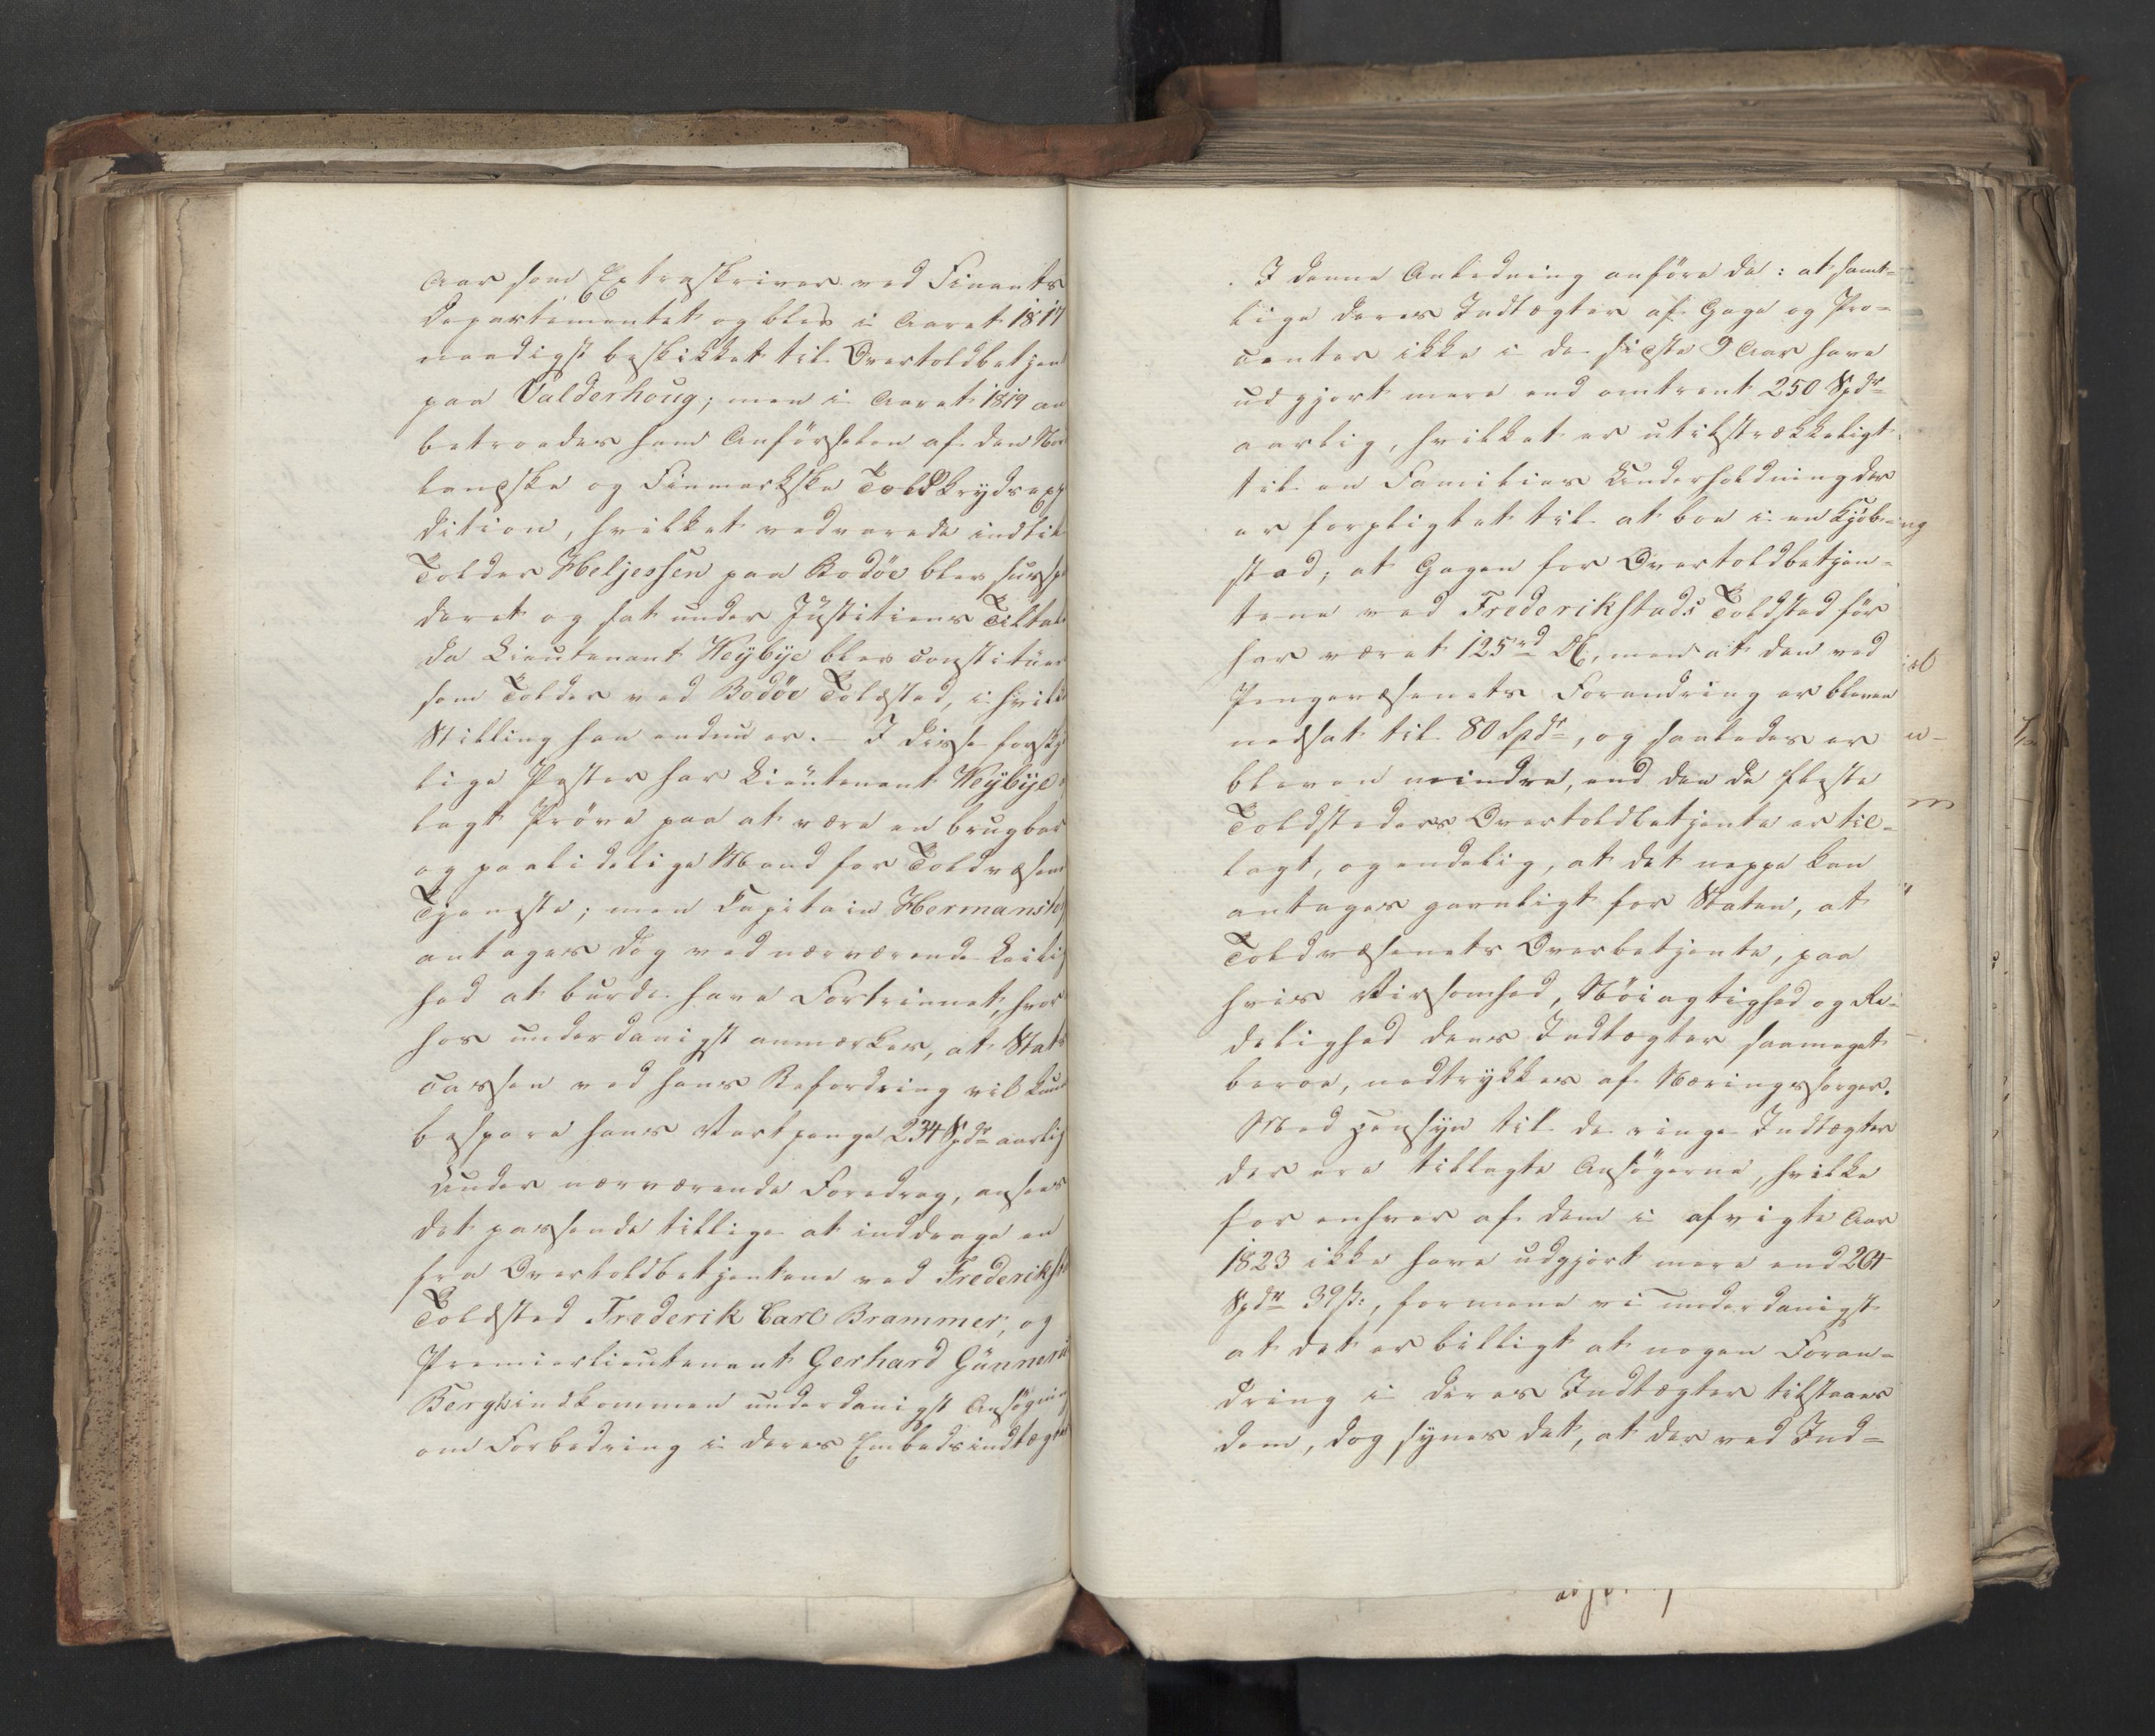 Aar som Extraskriver ved Finants
Departementet og blev i Aaret 1817
naadigst beskikket til Overtoldbetjen
paa Valderhoug; men i Aaret 1819 an
betroedes ham Anførselen af den Nor
landske og Finmarkske Toldkrydsexp
dition, hvilket vedvarede indtil
Tolder Heltjessen paa Bodöe blev suspen
deret og sat under Justitiens Tiltale
da Lieutenant Heÿbÿe blev constitüer
som Tolder ved Bodöe Toldsted, i hvilk
Stilling han endnu er. – I disse forskjel
lige Poster har Lieutenant Heÿbÿe a
lagt Pröve paa at være en brugbar
og paalidelige Mand for Toldvæsene
Tjeneste; men Capitain Hermanstor
antages dog ved nærværende Leilig
hed at burde have Fortrinnet, hvor
hos underdanigst anmærkes, at Stats
cassen ved hans Befordring vil kun
bespare hans Vartpenge 234 Spdr aarlig
Under nærværende Foredrag, ansees
det passende tillige at inddrage en
fra Overtoldbetjentene ved Frederiksta
Toldsted Frederik Carl Brammer, og
Premierlieutenant Gerhard Günneri
Bergh indkommen underdanigst Ansögning
om Forbedring i deres Embedsindtægter
I denne Anledning anföre de: at samt=
lige deres Indtægter af Gage og Pro=
center ikke i de sidste 9 Aar have
udgjort mere end omtrent 250 Spdr
aarlig, hvilket er utilstrækkeligt
til en Families Underholdning der
er forpligtet til at boe i en Kjöb=
stad; at Gagen for Overtoldbetjen=
tene ved Frederikstads Toldsted för
har været 125 rd, men at den ved
Pengevæsenets Forandring er bleven
nedsat til 80 Spdr, og saaledes er
bleven mindre, end den de fleste
Toldsteders Overtoldbetjente er til=
lagt, og endelig, at det neppe kan
antages gavnligt for Staten, at
Toldvæsenets Overbetjente, paa
hvis Virksomhed, Nöiagtighed og Re=
delighed dens Indtægter saameget
beroe, nedtrykkes af Næringssorger.
Med Hensyn til de ringe Indtægter
der ere tillagte Ansögerne, hvilke
for enhver af dem i afvigte Aar
1823 ikke have udgjort mere end 264
Spdr 39 s:, formene vi underdanigst
at det er billigt at nogen Foran=
dring i deres Indtægter tilstaaes
dem, dog synes det, at der ved Ind=